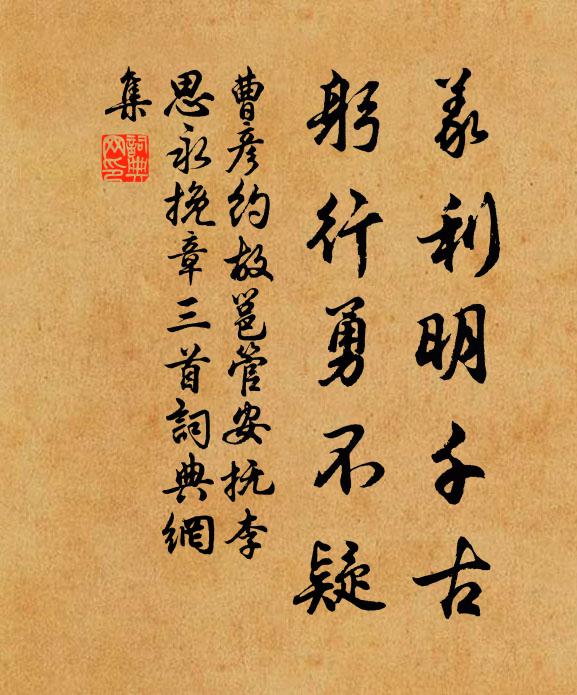 義利明千古
躬行勇不疑
曹彦約故邕管安抚李
思永挽章三首詞典網
集
詞典网印